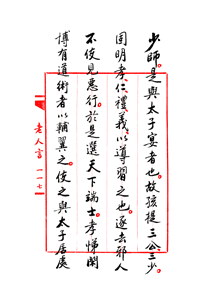 少師是與太子宴者也故孩提三公三少
固明孝仁禮義以導習之也逐去邪人
不使見惡行於是選天下端士孝悌閑
博有道術者以輔翼之使之與太子居處
老人言 一一七